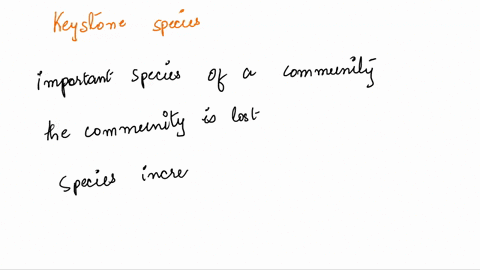 Keystone species
important species of a community
the community is lost
species incre